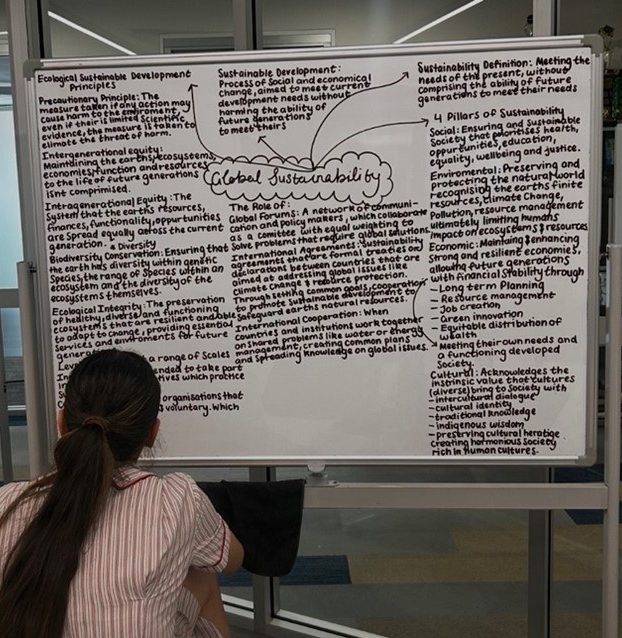 Ecological Sustainable Development
Principles
Precautionary Principle: The
measure taken if any action may
cause harm to the enviroment,
even if their is limited scientific
evidence, the measure is taken to
elimate the threat of harm.
Intergenerational equity:
Maintaining the earths, ecosystems,
economies, function and resources
to the life of future generations
isnt comprimised.
Intragenerational Equity: The
System that the earths resources,
finances, functionality, oppurtunities
are spread equally across the current
generation. & Diversity
Biodiversity Conservation: Ensuring that
the earth has diversity within genetic
Species, the range of Species within an
ecosystem and the diversity of the
ecosystems themselves.
Ecological Integrity: The preservation
of healthy, diverse and functioning
ecosystems that are resilient and able
to adapt to change, providing essential
Services and enviroments for future
gener
a range of Scales
nded to take part
tives which practice
organisations that
voluntary. Which
Sustainable Development:
Process of Social and economical
change, aimed to meet current
development needs without
harming the ability of
future generations
to meet theirs
Global Sustainability
The Role of:
Global Forums: A network of communi-
cation and policy makers, which collaborate
as a comittee with equal weighting to
Solve problems that require global solutions.
International Agreements: Sustainability
agreements that are formal treaties or
declarations between countries that are
aimed at addressing global issues like
Climate Change & resource protection.
Through setting common goals, cooperation
to promote Sustainable development to
Safeguard earths natural resources.
International Cooperation: When
Countries and institutions work together
on shared problems like water or energy
management, creating common plans
and spreading knowledge on global issues.
Sustainability Definition: Meeting the
needs of the present, without
comprising the ability of future
generations to meet their needs
4 Pillars of Sustainability
Social: Ensuring and Sustainable
Society that prioritises health,
oppurtunities, education,
equality, wellbeing and justice.
Enviromental: Preserving and
protecting the natural world
recognising the earths finite
resources, climate Change,
Pollution, resource management
ultimately limiting humans
impact on ecosystems & resources
Economic: Maintaing & enhancing
Strong and resilient economies,
allowing future generations
with financial Stability through
- Long term Planning
- Resource management
- Job Creation
- Green innovation
- Equitable distribution of
wealth
- Meeting their own needs and
a functioning developed
Society.
Cultural: Acknowledges the
instrinsic value that cultures
(diverse) bring to Society with
- intercultural dialogue
- cultural identity
- traditional knowledge
- indigenous wisdom
- preserving cultural heratige
creating harmonious Society
rich in human cultures.